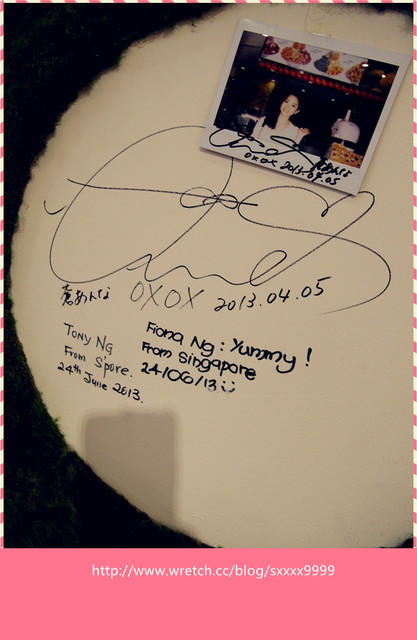 OXOX 2013.04.05
あんな OXOX 2013.04.05
Tony NG
From S'pore.
24th June 2013.
Fiona Ng : Yummy !
From Singapore
24/06/13
http://www.wretch.cc/blog/sxxxx9999